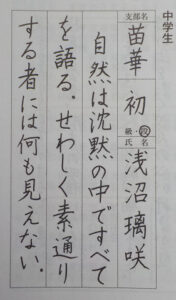 中学生
支部名
苗華
初
級・段
氏名
浅沼璃咲
自然は沈黙の中ですべて
を語る。せわしく素通り
する者には何も見えない。